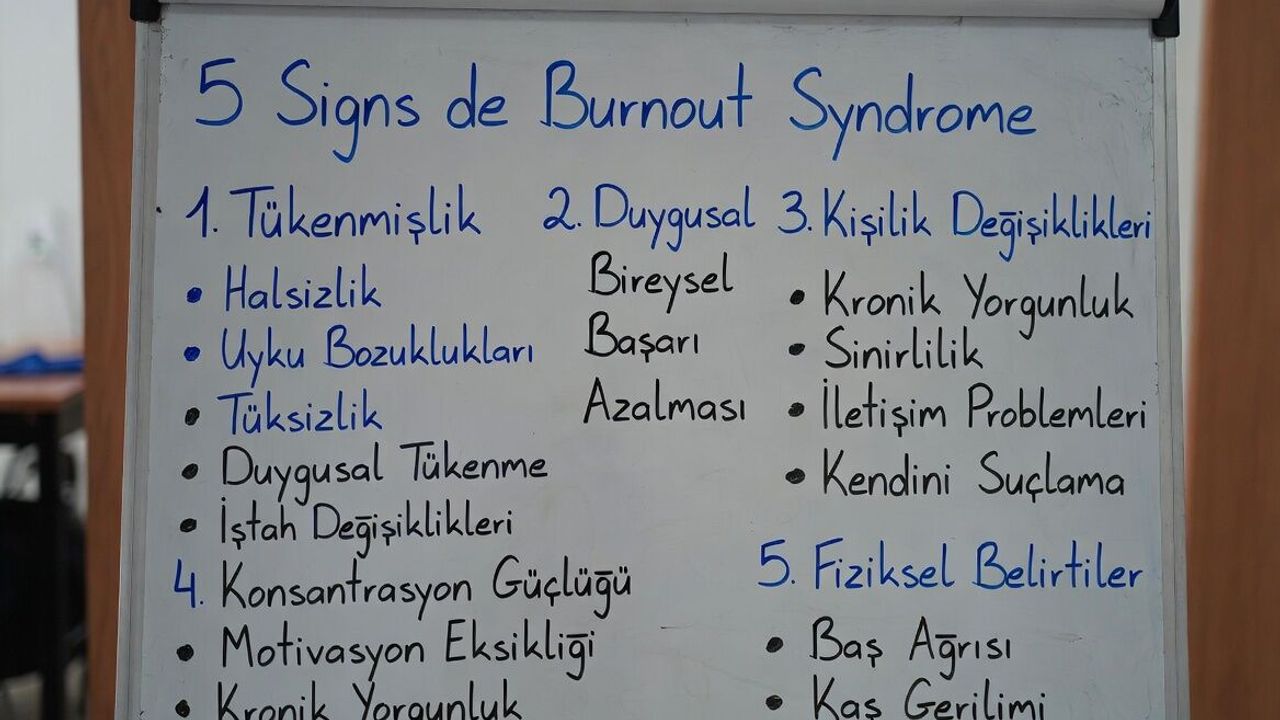 5 Signs de Burnout Syndrome
1. Tükenmişlik
• Halsizlik
• Uyku Bozuklukları
• Tüksizlik
• Duygusal Tükenme
• İştah Değişiklikleri
2. Duygusal
Bireysel
Başarı
Azalması
3. Kişilik Değişiklikleri
• Kronik Yorgunluk
• Sinirlilik
• İletişim Problemleri
• Kendini Suçlama
4. Konsantrasyon Güçlüğü
• Motivasyon Eksikliği
• Kronik Yorgunluk
5. Fiziksel Belirtiler
• Baş Ağrısı
• Kaş Gerilimi